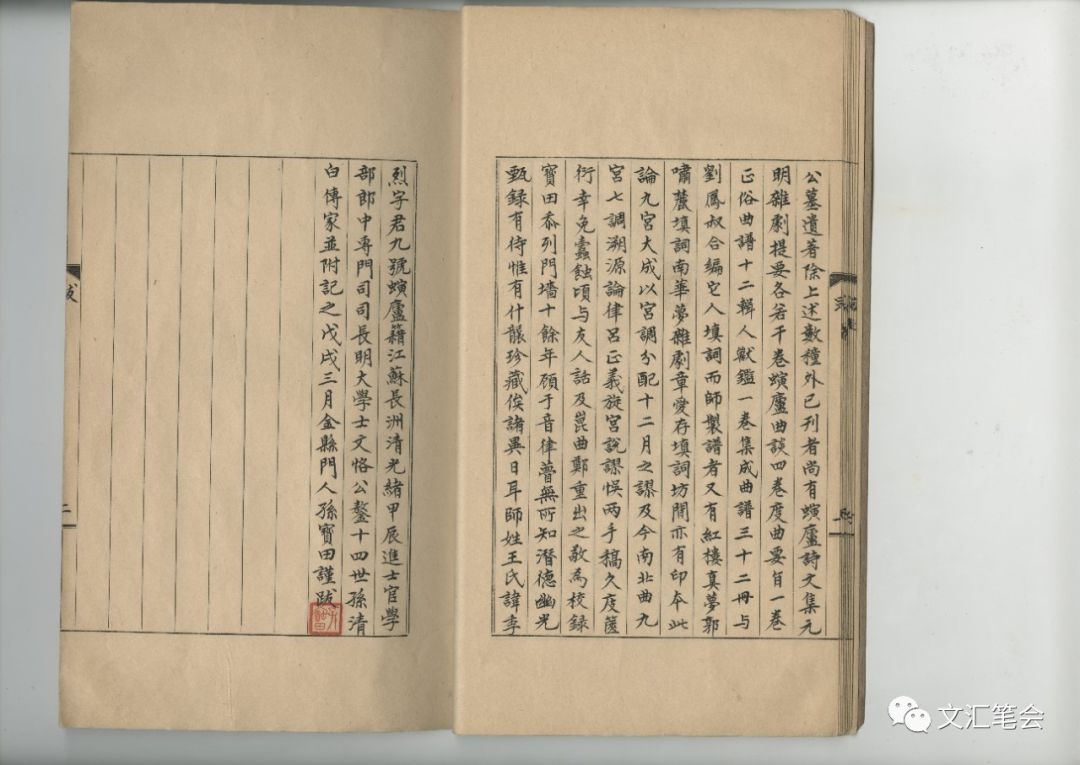 公墓遺著除上述數種外已刊者尚有螾廬詩文集元
明雜劇提要各若干卷螾廬曲談四卷度曲要旨一卷
正俗曲譜十二輯人獸鑑一卷集成曲譜三十二冊與
劉鳳叔合編它人填詞而師製譜者又有紅樓真夢郭
嘯麓填詞南華夢雜劇章愛存填詞坊間亦有印本此
論九宮大成以宮調分配十二月之謬及今南北曲九
宮七調溯源論律呂正義旋宮說謬悞兩手稿久庋篋
衍幸免蠹蝕頃与友人話及崑曲鄭重出之敬為校錄
寶田忝列門墻十餘年顧于音律瞢無所知潛德幽光
甄錄有待惟有什襲珍藏俟諸異日耳師姓王氏諱季
烈字君九號螾廬籍江蘇長洲清光緒甲辰進士官學
部郎中專門司司長明大學士文恪公鏊十四世孫清
白傳家並附記之戊戌三月金縣門人孫寶田謹跋
跋
二
文汇笔会